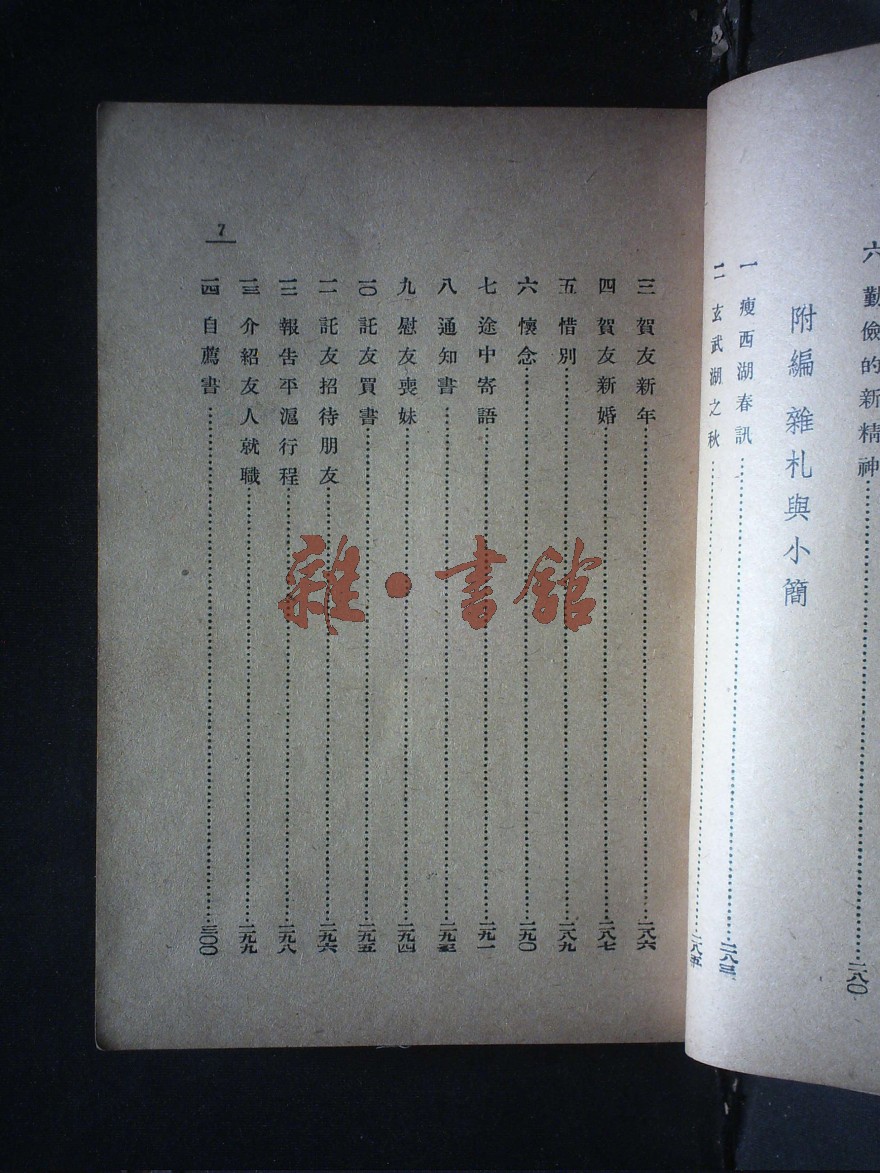 六 勤儉的新精神……二八〇
附編 雜札與小簡
一 瘦西湖春訊……二八三
二 玄武湖之秋……二八五
7
三 賀友新年……二八六
四 賀友新婚……二八七
五 惜別……二八九
六 懷念……二九〇
七 途中寄語……二九一
八 通知書……二九三
九 慰友喪妹……二九四
一〇 託友買書……二九五
一一 託友招待朋友……二九六
一二 報告平滬行程……二九八
一三 介紹友人就職……二九九
一四 自薦書……三〇〇
雜·書館